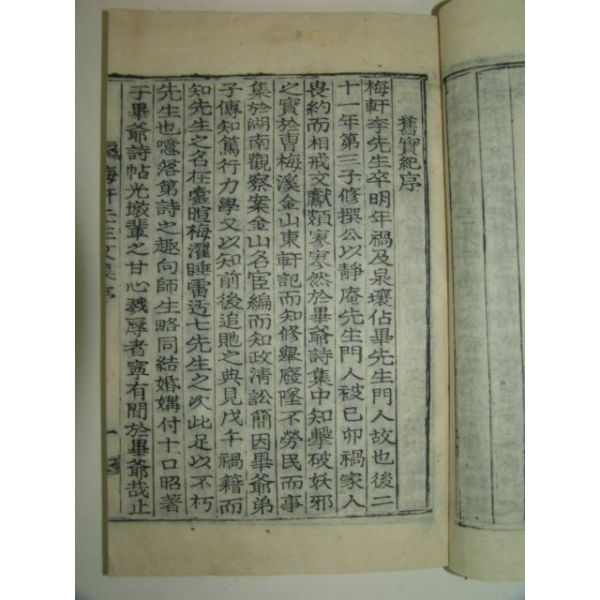 舊實紀序
梅軒李先生卒明年禍及泉壤佔畢先生門人故也後二
十一年第三子修撰公以靜庵先生門人被己卯禍家人
畏約而相戒文獻類寥寥然於畢爺詩集中知擊破妖邪
之實於曺梅溪金山東軒記而知修擧廢墜不勞民而事
集於湖南觀察案金山名宦編而知政淸訟簡因畢爺弟
子傳知篤行力學又以知前後追貤之典見戊午禍籍而
知先生之名在䨥暄梅濯睡雷迃七先生之次此足以不朽
先生也噫落第詩之趣向師生略同結婚媾付十口昭著
于畢爺詩帖光墩輩之甘心戮辱者寧有間於畢爺哉止
梅軒先生文集序
一